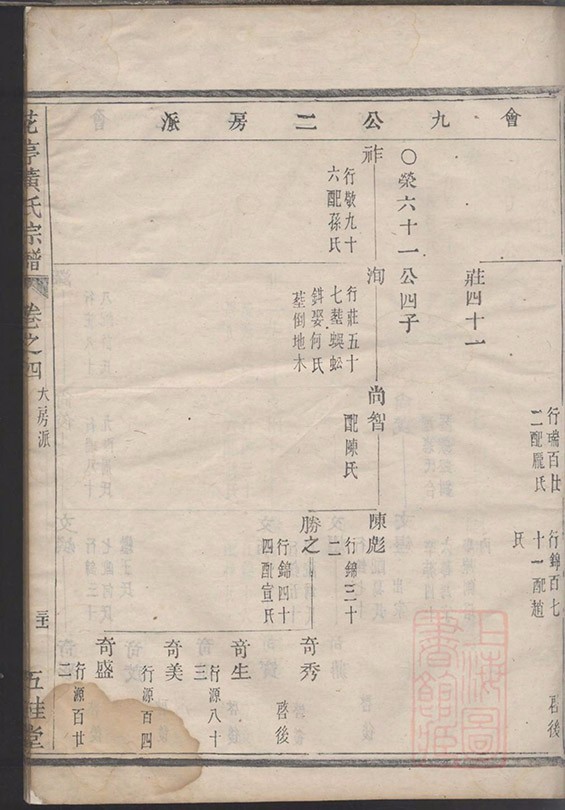 會九公二房派
行瑞百廿
二配龐氏
行錦百七
十一配趙
氏
啓後
莊四十一
○榮六十一公四子
祚
行敬九十
六配孫氏
洵
行莊五十
七塟蜈蚣
斜娶何氏
塟倒地木
尚智
配陳氏
陳彪
行錦三十
二
勝之
行錦四十
四配宣氏
奇秀
啓後
奇生
行源八十
三
奇美
行源百四
奇盛
行源百廿
二
花亭黃氏宗譜
卷之四
大房派
五桂堂
上海圖書館藏